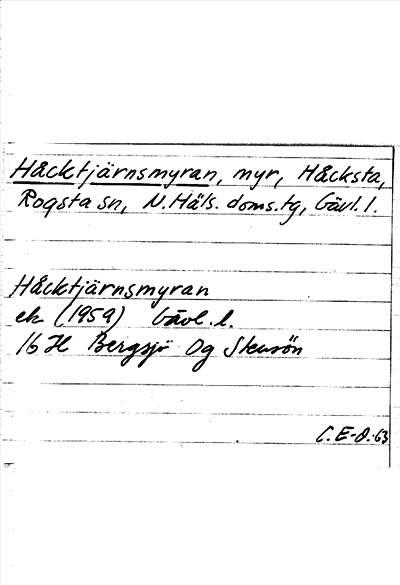 Håcktjärnsmyran, myr, Håcksta,
Rogsta sn, N.Häls. doms.tg, Gävl. l.
Håcktjärnsmyran
ek (1959) Gävl. l.
16 H Bergsjö Og Stensön
C.E-d.63